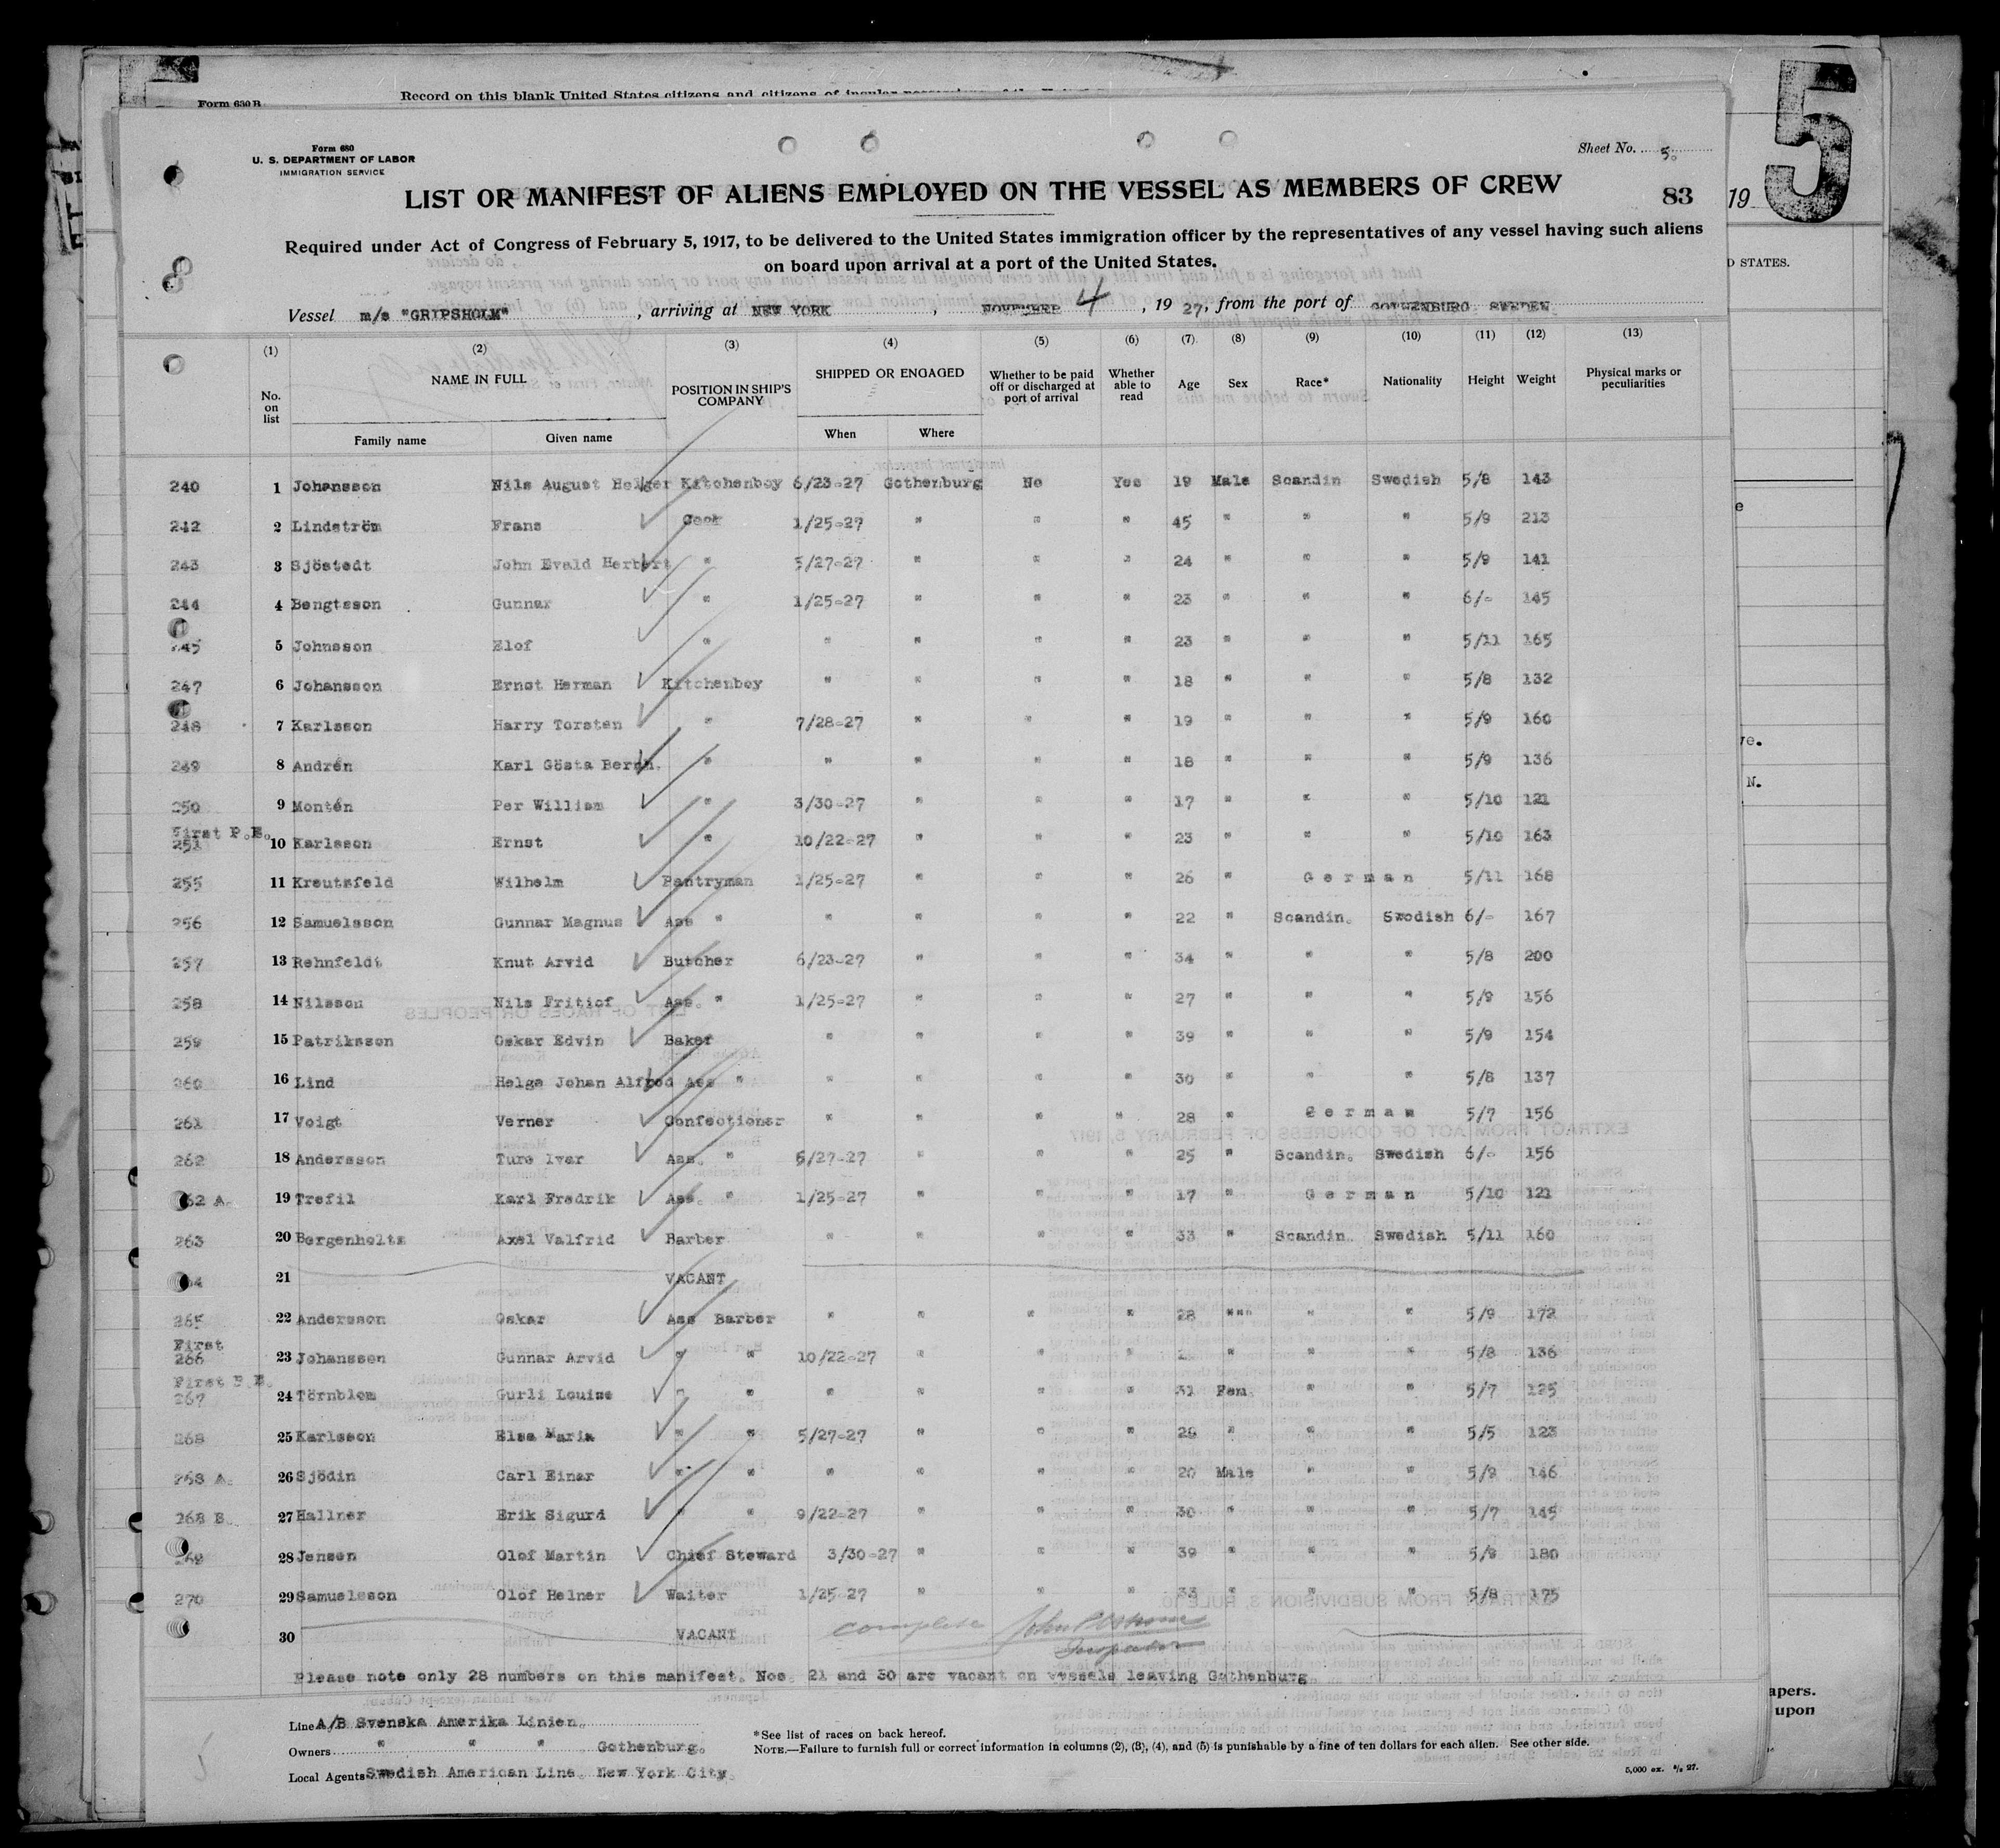 Form 630 B
Record on this blank United States citizens and citizens of insular
5
Form 680
U. S. DEPARTMENT OF LABOR
IMMIGRATION SERVICE
Sheet No. 5.
LIST OR MANIFEST OF ALIENS EMPLOYED ON THE VESSEL AS MEMBERS OF CREW
83
19
Required under Act of Congress of February 5, 1917, to be delivered to the United States immigration officer by the representatives of any vessel having such aliens
on board upon arrival at a port of the United States.
D STATES.
Vessel m/s "GRIPSHOLM", arriving at NEW YORK, NOVEMBER 4, 1927, from the port of GOTHENBURG SWEDEN
(1) (2) (3) (4) (5) (6) (7) (8) (9) (10) (11) (12) (13)
No. on list NAME IN FULL POSITION IN SHIP'S COMPANY SHIPPED OR ENGAGED Whether to be paid off or discharged at port of arrival Whether able to read Age Sex Race* Nationality Height Weight Physical marks or peculiarities
Family name Given name When Where
240 1 Johansson Nils August Helger Kitchenboy 6/23-27 Gothenburg No Yes 19 Male Scandin Swedish 5/8 143
242 2 Lindström Frans Cook 1/25-27 " " " 45 " " " 5/9 213
243 3 Sjöstedt John Evald Herbert " 5/27-27 " " " 24 " " " 5/9 141
244 4 Bengtsson Gunnar " 1/25-27 " " " 23 " " " 6/- 145
245 5 Johnsson Elof " " " " " 23 " " " 5/11 165
247 6 Johansson Ernst Herman Kitchenboy " " " " 18 " " " 5/8 132
248 7 Karlsson Harry Torsten " 7/28-27 " " " 19 " " " 5/9 160
249 8 Andrén Karl Gösta Bernh. " " " " " 18 " " " 5/9 136
250 9 Montén Per William " 3/30-27 " " " 17 " " " 5/10 121
First P.E.
251 10 Karlsson Ernst " 10/22-27 " " " 23 " " " 5/10 163
255 11 Kreutzfeld Wilhelm Pantryman 1/25-27 " " " 26 " German 5/11 168
256 12 Samuelsson Gunnar Magnus Ass " " " " " 22 " Scandin. Swedish 6/- 167
257 13 Rehnfeldt Knut Arvid Butcher 6/23-27 " " " 34 " " " 5/8 200
258 14 Nilsson Nils Fritiof Ass. " 1/25-27 " " " 27 " " " 5/9 156
259 15 Patriksson Oskar Edvin Baker " " " " 39 " " " 5/9 154
260 16 Lind Helge Johan Alfred Ass " " " " " 30 " " " 5/8 137
261 17 Voigt Verner Confectioner " " " " 28 " German 5/7 156
262 18 Andersson Ture Ivar Ass. " 5/27-27 " " " 25 " Scandin. Swedish 6/- 156
262 A. 19 Trefil Karl Fredrik Ass. " 1/25-27 " " " 17 " German 5/10 121
263 20 Bergenholtz Axel Valfrid Barber " " " " 33 " Scandin. Swedish 5/11 160
264 21 VACANT
265 22 Andersson Oskar Ass Barber " " " " 28 """ " " 5/9 172
First
266 23 Johanssen Gunnar Arvid " " 10/22-27 " " " " " " 5/8 136
First P.E.
267 24 Törnblom Gurli Louise " " " " " " 31 Fem. " " 5/7 125
268 25 Karlsson Elsa Maria " " 5/27-27 " " " 29 " " " 5/5 123
268 A. 26 Sjödin Carl Einar " " " " " " 20 Male " " 5/9 146
268 B 27 Hallner Erik Sigurd " " 9/22-27 " " " 30 " " " 5/7 145
269 28 Jensen Olof Martin Chief Steward 3/30-27 " " " 39 " " " 5/9 180
270 29 Samuelsson Olof Helner Waiter 1/25-27 " " " 33 " " " 5/8 175
30 VACANT complete John Inspector
Please note only 28 numbers on this manifest. Nos. 21 and 30 are vacant on vessels leaving Gothenburg
Line A/B Svenska Amerika Linien.
*See list of races on back hereof.
Owners " " " Gothenburg.
NOTE.—Failure to furnish full or correct information in columns (2), (3), (4), and (5) is punishable by a fine of ten dollars for each alien. See other side.
Local Agents Swedish American Line. New York City.
5,000 ex. 5/9 27.
apers.
upon